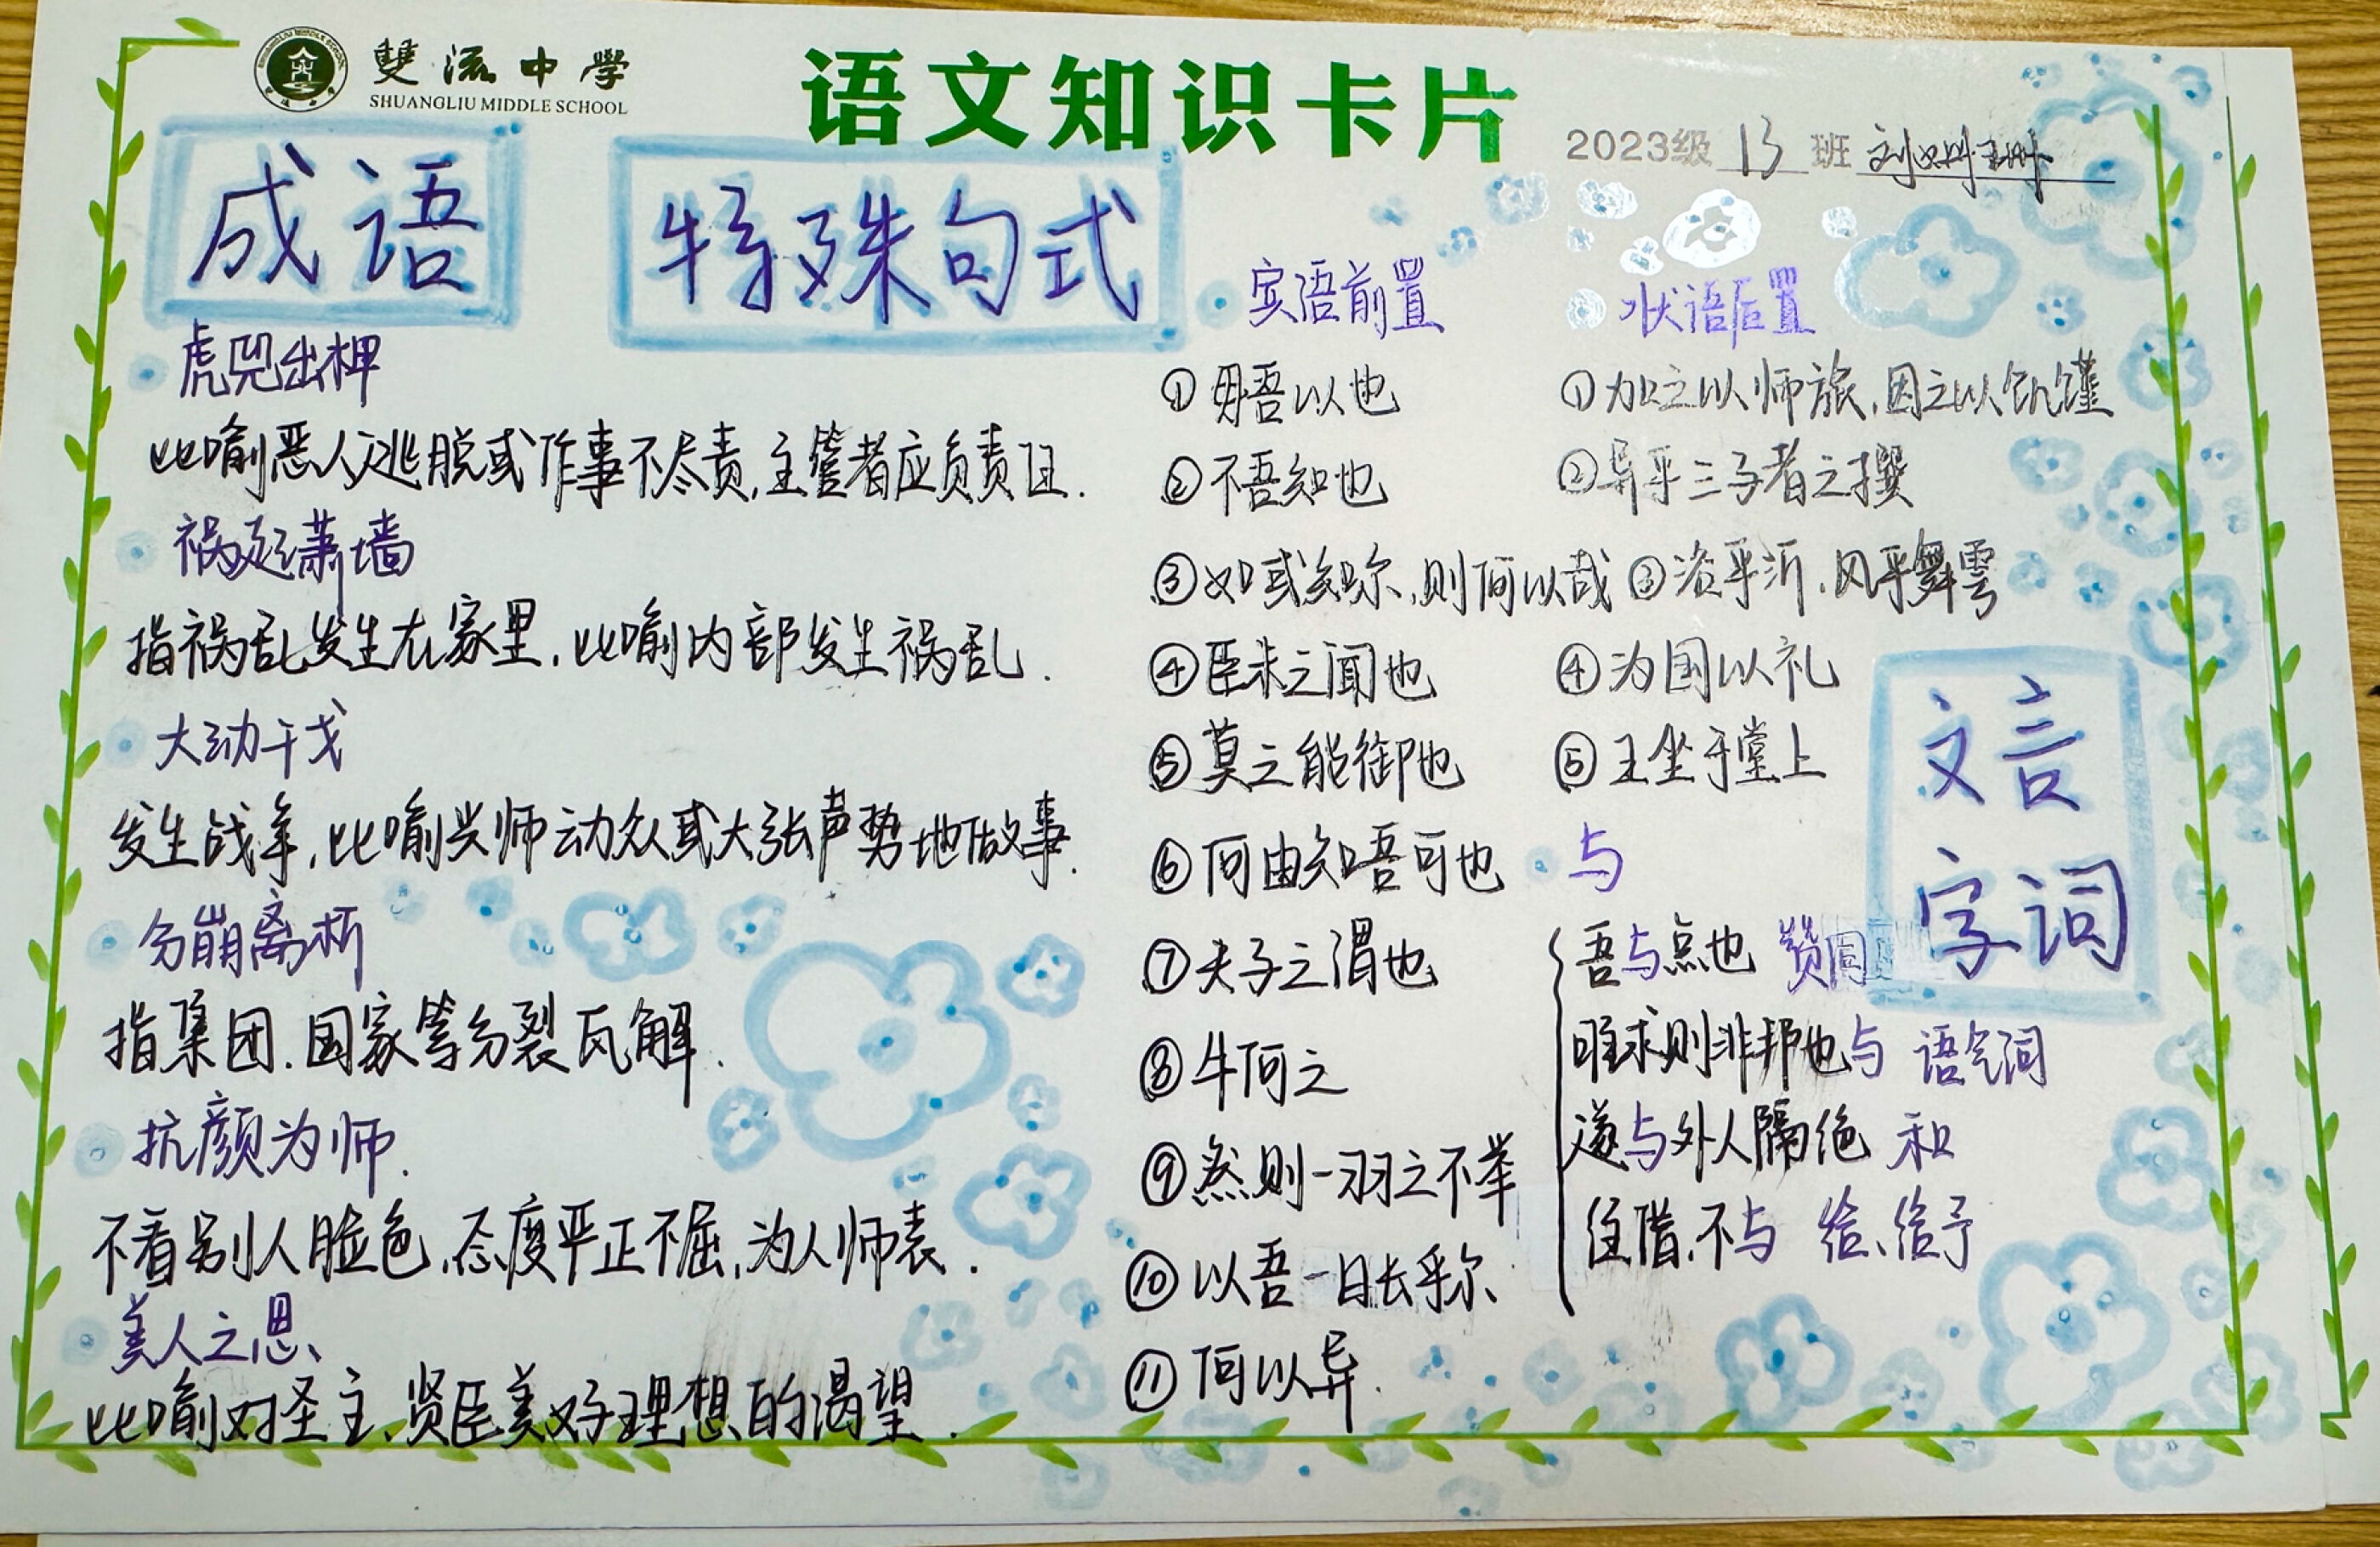 雙流中學
SHUANGLIU MIDDLE SCHOOL
语文知识卡片
2023级 13 班
成语
虎兕出柙
比喻恶人逃脱或作事不尽责,主管者应负责任.
祸起萧墙
指祸乱发生在家里,比喻内部发生祸乱.
大动干戈
发生战争,比喻兴师动众或大张声势地做事.
分崩离析
指集团、国家等分裂瓦解.
抗颜为师.
不看别人脸色,态度严正不屈,为人师表.
美人之思、
比喻对圣主、贤臣美好理想的渴望.
特殊句式
宾语前置
①毋吾以也
②不吾知也
③如或知尔,则何以哉
④臣未之闻也
⑤莫之能御也
⑥何由知吾可也
⑦夫子之谓也
⑧牛何之
⑨然则一羽之不举
⑩以吾一日长乎尔
⑪何以异.
状语后置
①加之以师旅,因之以饥馑
②异乎三子者之撰
③浴乎沂,风乎舞雩
④为国以礼
⑤王坐于堂上
文言
字词
与
吾与点也 赞同
唯求则非邦也与 语气词
遂与外人隔绝 和
往借,不与 给、给予